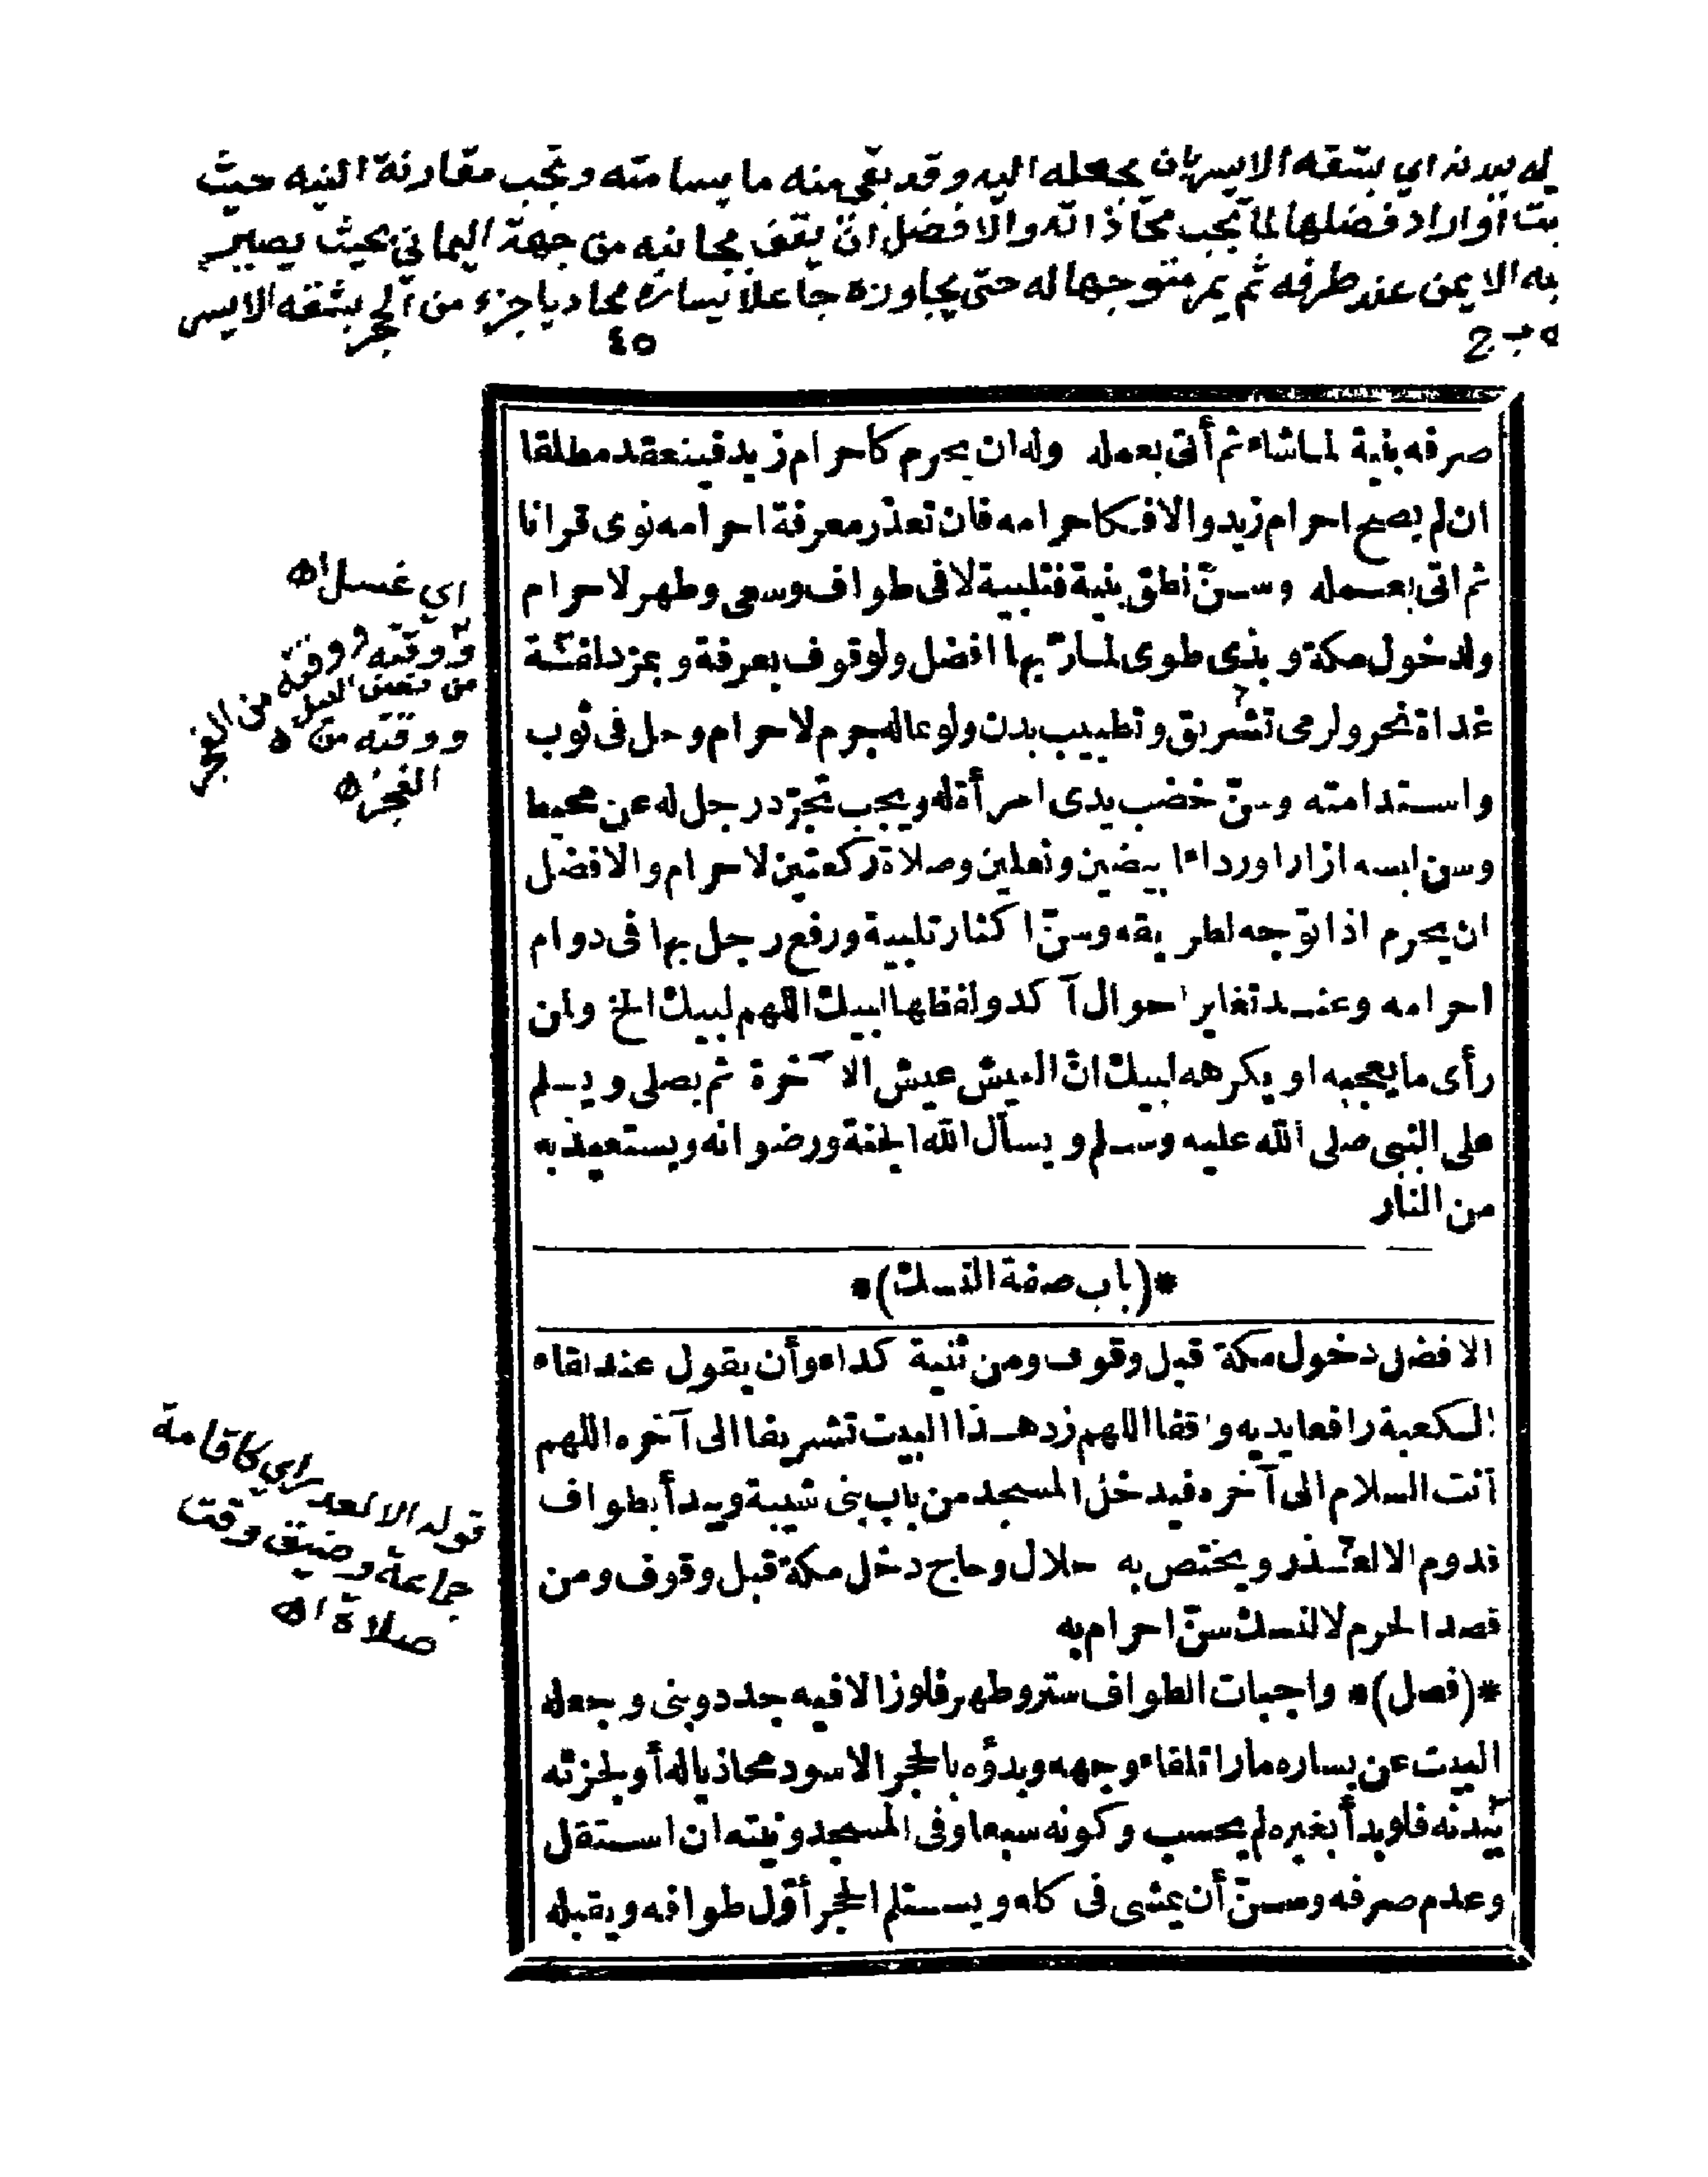 له ببدنه اي بشقه الايسر بان يجعله اليه وقد بقي منه ما يسامته وتجب مقارنة النيه حيث
او اراد فضلها لما تجب محاذاته والافضل ان يقف بجانبه من جهة اليماني بحيث يصير
الايمن عند طرفه ثم يمر متوجها له حتى يجاوزه جاعلا يساره محاذيا جزء من الحجر بشقه الايسر
٤٥
صرفه بنية لما شاء ثم أتى بعمله وله ان يحرم كاحرام زيد فينعقد مطلقا
ان لم يصح احرام زيد والا فكاحرامه فان تعذر معرفة احرامه نوى قرانا
ثم اتى بعمله وسنّ نطق بنية فتلبية لا فى طواف وسعى وطهر لاحرام
ولدخول مكة وبذى طوى لمارّ بها افضل ولوقوف بعرفة وبمزدلفة
غداة نحر ولرمى تشريق وتطييب بدن ولو بماله جرم لاحرام وحل فى ثوب
واستدامته وسنّ خضب يدى امرأة له ويجب تجرّد رجل له عن محيط
وسن لبسه ازارا ورداء ابيضين ونعلين وصلاة ركعتين لاحرام والافضل
ان يحرم اذا توّجه لطريقه وسنّ اكثار تلبية ورفع رجل بها فى دوام
احرامه وعند تغاير احوال آكد ولفظها لبيك اللهم لبيك الخ ولمن
رأى ما يعجبه او يكرهه لبيك انّ العيش عيش الآخرة ثم يصلى ويسلم
على النبى صلى الله عليه وسلم ويسأل الله الجنة ورضوانه ويستعيذ به
من النار
*(باب صفة النسك)*
الافضل دخول مكة قبل وقوف ومن ثنية كداء وأن يقول عند لقاء
الكعبة رافعا يديه واقفا اللهم زد هذا البيت تشريفا الى آخره اللهم
أنت السلام الى آخره فيدخل المسجد من باب بنى شيبة ويبدأ بطواف
قدوم الا لعذر ويختص به حلال وحاج دخل مكة قبل وقوف ومن
قصد الحرم لا لنسك سنّ احرام به
*(فصل)* واجبات الطواف ستر وطهر فلو زالا فيه جدد وبنى وجعله
البيت عن يساره مارا تلقاء وجهه وبدؤه بالحجر الاسود محاذيا له أو لجزئه
ببدنه فلو بدأ بغيره لم يحسب وكونه سبعا وفى المسجد ونيته ان استقل
وعدم صرفه وسنّ أن يمشى فى كله ويستلم الحجر أوّل طوافه ويقبله
اي غسل اه
ووقته من
من نصف الليل
ووقته من الفجر
ووقته من
الفجر اه
قوله الا لعذر اي كاقامة
جماعة وضيق وقت
صلاة اه